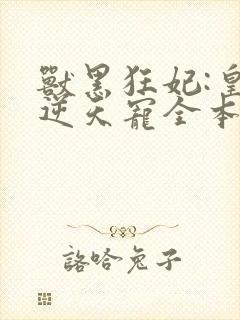 獸黑狂妃:皇
逆天寵全本
詻哈兔子